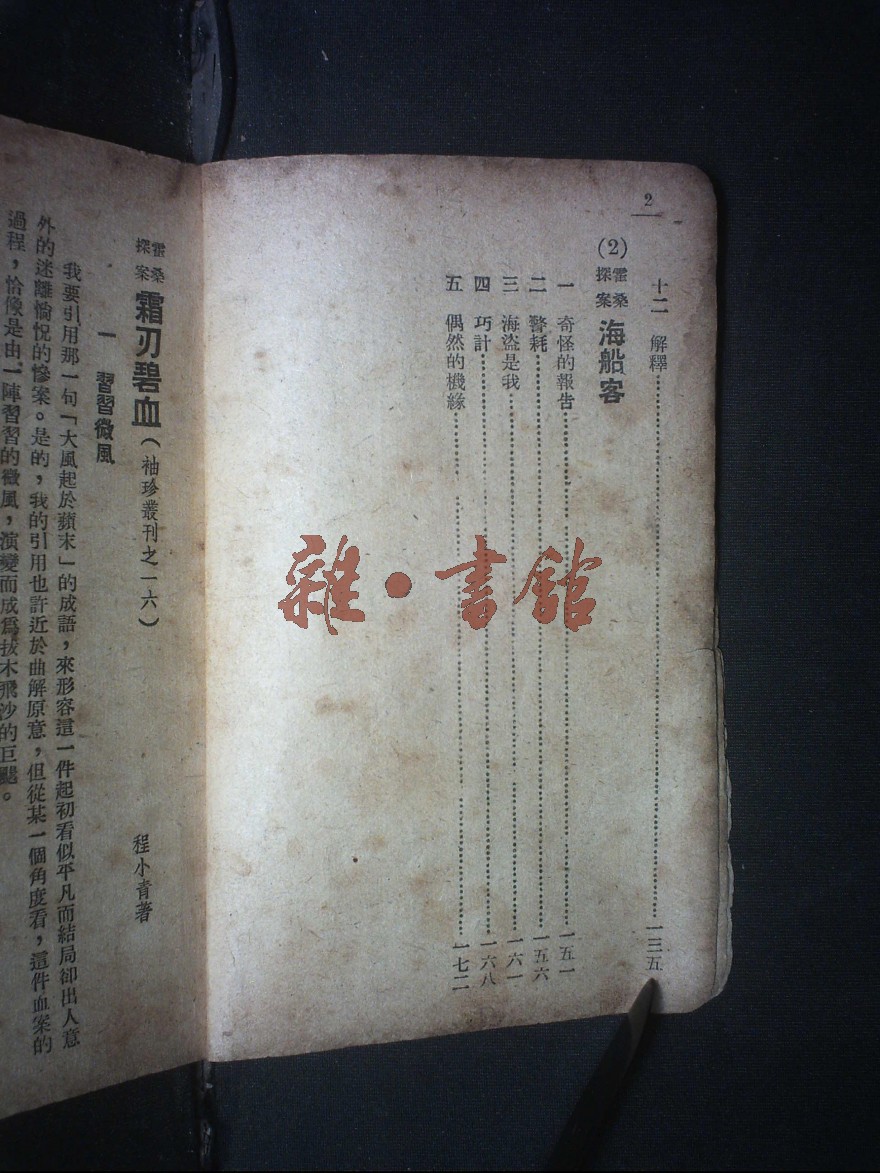 2
十二 解釋……一三五
(2)霍桑探案 海船客
一 奇怪的報告……一五一
二 警耗……一五六
三 海盜是我……一六一
四 巧計……一六八
五 偶然的機緣……一七二
霍桑探案 霜刃碧血（袖珍叢刊之一六） 程小青著
一 習習微風
我要引用那一句「大風起於蘋末」的成語，來形容這一件起初看似平凡而結局卻出人意
外的迷離惝怳的慘案。是的，我的引用也許近於曲解原意，但從某一個角度看，這件血案的
過程，恰像是由一陣習習的微風，演變而成爲拔木飛沙的巨飈。
雜·書館